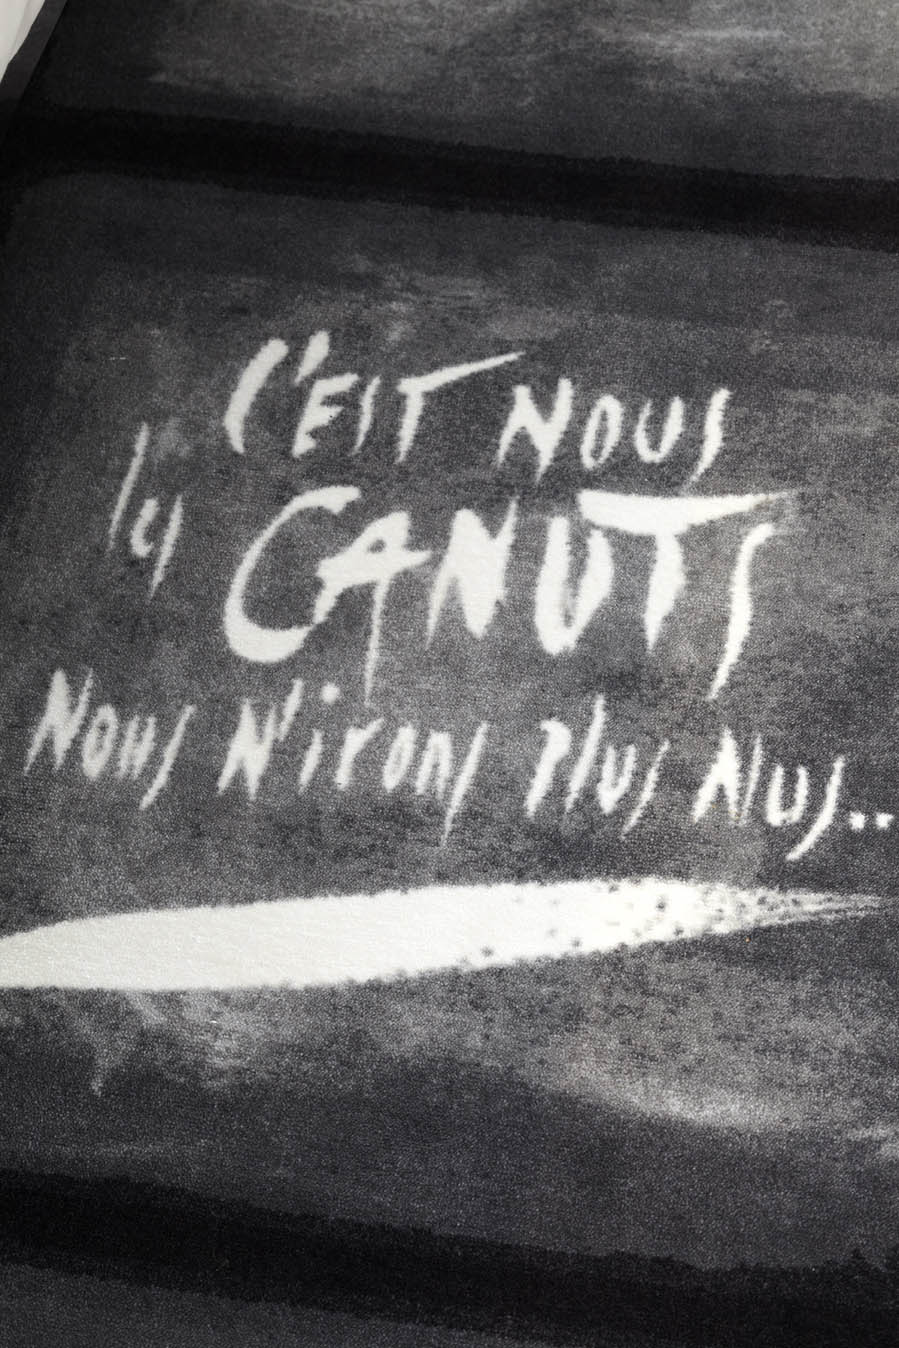 C'EST NOUS
les CANUTS
Nous N'irons Plus Nus..